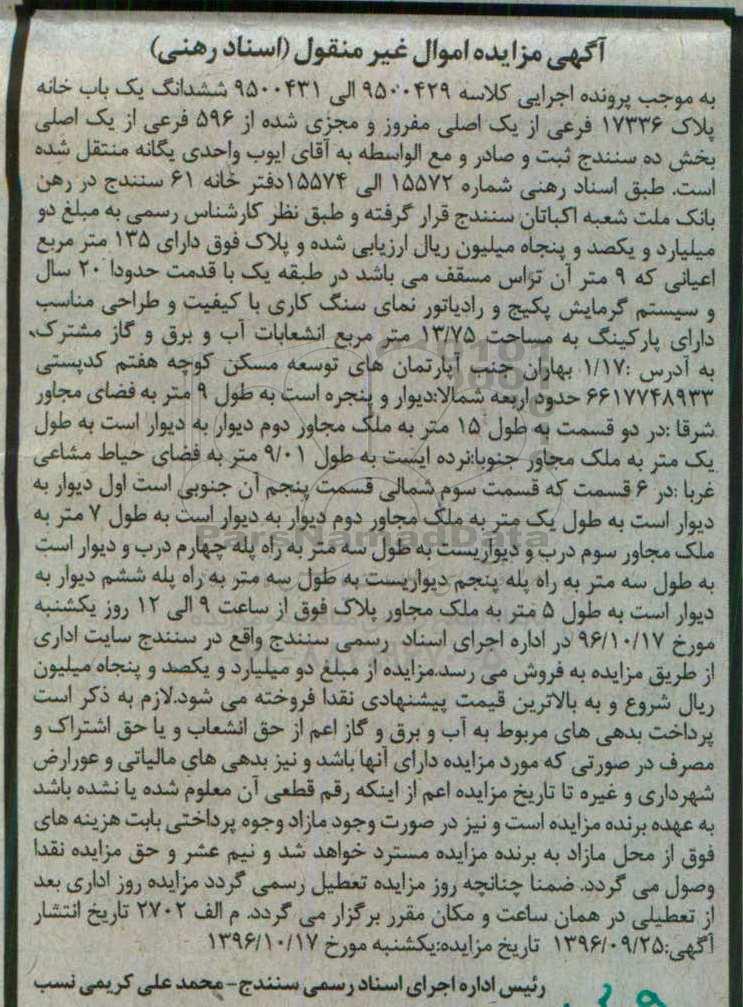 آگهی مزایده اموال غیر منقول (اسناد رهنی)
به موجب پرونده اجرایی کلاسه ۹۵۰۰۴۲۹ الی ۹۵۰۰۴۳۱ ششدانگ یک باب خانه
پلاک ۱۷۳۳۶ فرعی از یک اصلی مفروز و مجزی شده از ۵۹۶ فرعی از یک اصلی
بخش ده سنندج ثبت و صادر و مع الواسطه به آقای ایوب واحدی یگانه منتقل شده
است. طبق اسناد رهنی شماره ۱۵۵۷۲ الی ۱۵۵۷۴دفتر خانه ۶۱ سنندج در رهن
بانک ملت شعبه اکباتان سنندج قرار گرفته و طبق نظر کارشناس رسمی به مبلغ دو
میلیارد و یکصد و پنجاه میلیون ریال ارزیابی شده و پلاک فوق دارای ۱۳۵ متر مربع
اعیانی که ۹ متر آن تراس مسقف می باشد در طبقه یک با قدمت حدودا ۲۰ سال
و سیستم گرمایش پکیج و رادیاتور نمای سنگ کاری با کیفیت و طراحی مناسب
دارای پارکینگ به مساحت ۱۳/۷۵ متر مربع انشعابات آب و برق و گاز مشترک،
به آدرس :۱/۱۷ بهاران جنب آپارتمان های توسعه مسکن کوچه هفتم کدپستی
۶۶۱۷۷۴۸۹۳۳ حدود اربعه شمالا:دیوار و پنجره است به طول ۹ متر به فضای مجاور
شرقا :در دو قسمت به طول ۱۵ متر به ملک مجاور دوم دیوار به دیوار است به طول
یک متر به ملک مجاور جنوبا:نرده ایست به طول ۹/۰۱ متر به فضای حیاط مشاعی
غربا :در ۶ قسمت که قسمت سوم شمالی قسمت پنجم آن جنوبی است اول دیوار به
دیوار است به طول یک متر به ملک مجاور دوم دیوار به دیوار است به طول ۷ متر به
ملک مجاور سوم درب و دیواریست به طول سه متر به راه پله چهارم درب و دیوار است
به طول سه متر به راه پله پنجم دیواریست به طول سه متر به راه پله ششم دیوار به
دیوار است به طول ۵ متر به ملک مجاور پلاک فوق از ساعت ۹ الی ۱۲ روز یکشنبه
مورخ ۹۶/۱۰/۱۷ در اداره اجرای اسناد رسمی سنندج واقع در سنندج سایت اداری
از طریق مزایده به فروش می رسد.مزایده از مبلغ دو میلیارد و یکصد و پنجاه میلیون
ریال شروع و به بالاترین قیمت پیشنهادی نقدا فروخته می شود.لازم به ذکر است
پرداخت بدهی های مربوط به آب و برق و گاز اعم از حق انشعاب و یا حق اشتراک و
مصرف در صورتی که مورد مزایده دارای آنها باشد و نیز بدهی های مالیاتی و عورارض
شهرداری و غیره تا تاریخ مزایده اعم از اینکه رقم قطعی آن معلوم شده یا نشده باشد
به عهده برنده مزایده است و نیز در صورت وجود مازاد وجوه پرداختی بابت هزینه های
فوق از محل مازاد به برنده مزایده مسترد خواهد شد و نیم عشر و حق مزایده نقدا
وصول می گردد. ضمنا چنانچه روز مزایده تعطیل رسمی گردد مزایده روز اداری بعد
از تعطیلی در همان ساعت و مکان مقرر برگزار می گردد. م الف ۲۷۰۲ تاریخ انتشار
آگهی:۱۳۹۶/۰۹/۲۵ تاریخ مزایده:یکشنبه مورخ ۱۳۹۶/۱۰/۱۷
رئیس اداره اجرای اسناد رسمی سنندج - محمد علی کریمی نسب
ParsNamadData